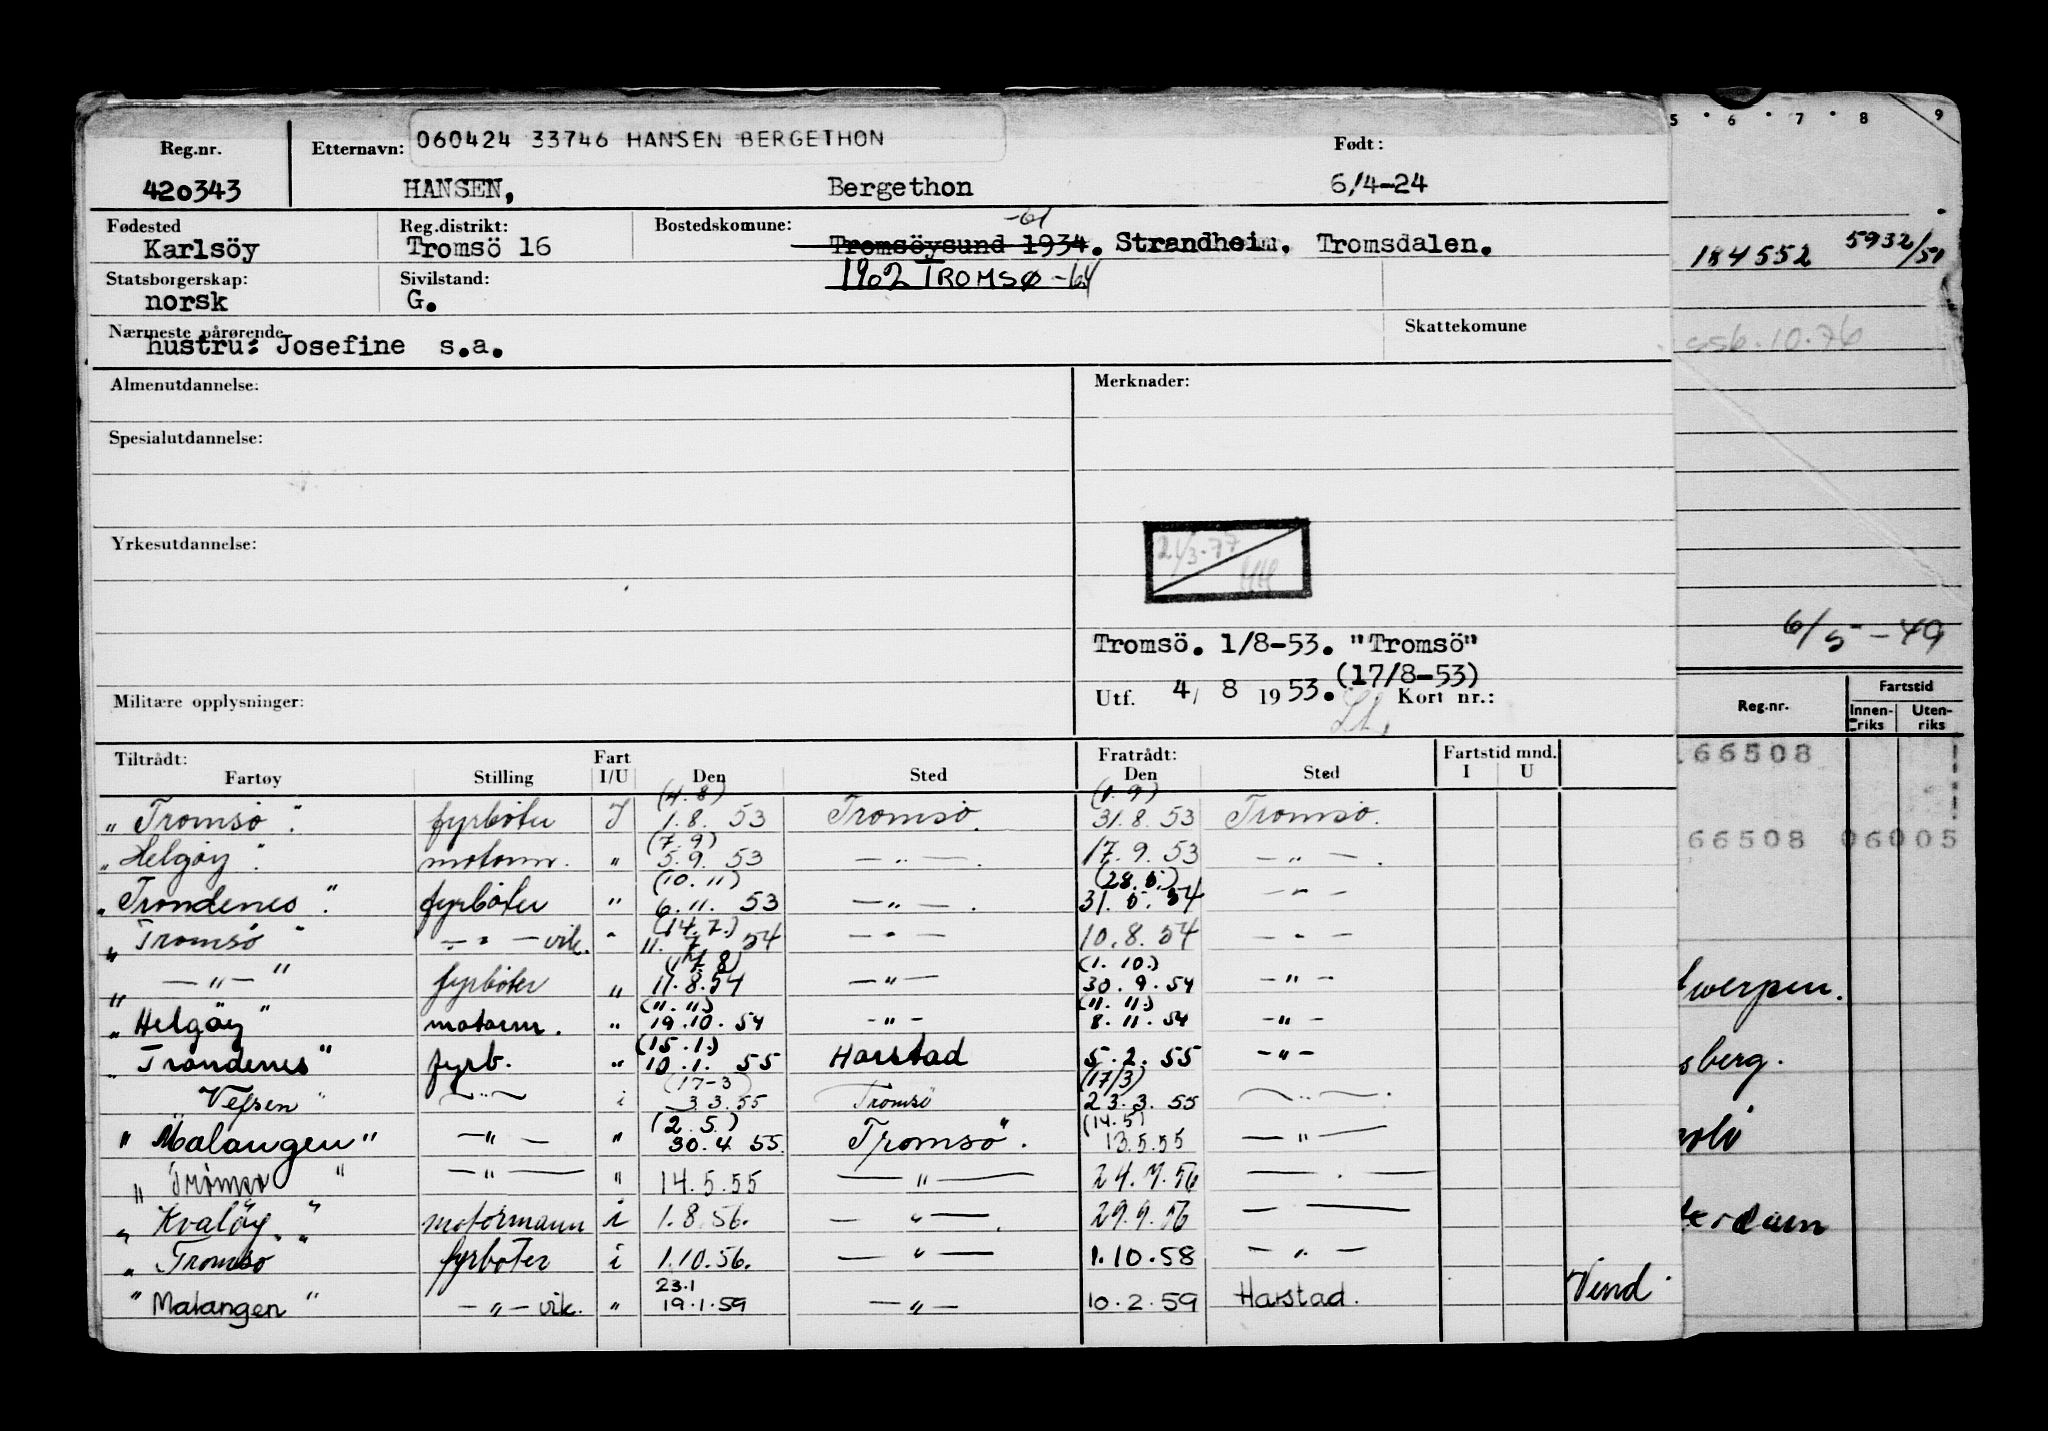 Reg.nr. Etternavn: 060424 33746 HANSEN BERGETHON Født:
420343 HANSEN, Bergethon 6/4-24
Fødested Reg.distrikt: Bostedskomune: -61
Karlsöy Tromsö 16 Tromsöysund 1934. Strandheim, Tromsdalen.
Statsborgerskap: Sivilstand: 1962 TROMSØ -64
norsk G.
Nærmeste pårørende Skattekomune
hustru: Josefine s.a.
Almenutdannelse: Merknader:
Spesialutdannelse:
Yrkesutdannelse:
21/3-77
HH
Tromsö. 1/8-53. "Tromsö"
(17/8-53)
Militære opplysninger: Utf. 4/ 8 1953. Kort nr.:
Tiltrådt: Fart Fratrådt: Fartstid mnd.
Fartøy Stilling I/U Den Sted Den Sted I U
(4.8) (1.9)
"Tromsö". fyrböter I 1.8.53 Tromsö. 31.8.53 Tromsö.
(7.9)
"Helgöy". motorm. " 5.9.53 — " — . 17.9.53 — " — .
(10.11) (28.5.)
"Trondenes". fyrböter " 6.11.53 — " — . 31.5.54 — " —
(14.7.)
"Tromsö" — " — vik. " 11.7.54 — " — 10.8.54 — " —
(17.8) (1.10.)
" — " — " fyrböter " 11.8.54 — " — 30.9.54 — " —
(11.11) (11.11.)
"Helgöy" motorm. " 19.10.54 — " — 8.11.54 — " —
(15.1.)
"Trondenes" fyrb. " 10.1.55 Harstad 5.2.55 — " —
(17-3) (17/3)
Vefsen " — " — i 3.3.55 Tromsö 23.3.55 — " — .
(2.5.) (14.5)
"Malangen" — " — " 30.4.55 Tromsö. 13.5.55 — " —
"Tromsö" — " — " 14.5.55 — " — 24.7.56 — . —
"Kvalöy" motormann i 1.8.56. — " — . 29.9.56 — " —
"Tromsö" fyrböter i 1.10.56. — " — 1.10.58 — " —
23.1
"Malangen" — " — vik. " 19.1.59 — " — 10.2.59 Harstad. Vend
5 6 7 8 9
184552 5932/51
ssb.10.76
6/5-49
Reg.nr. Fartstid
Innen-riks Uten-riks
66508
66508 06005